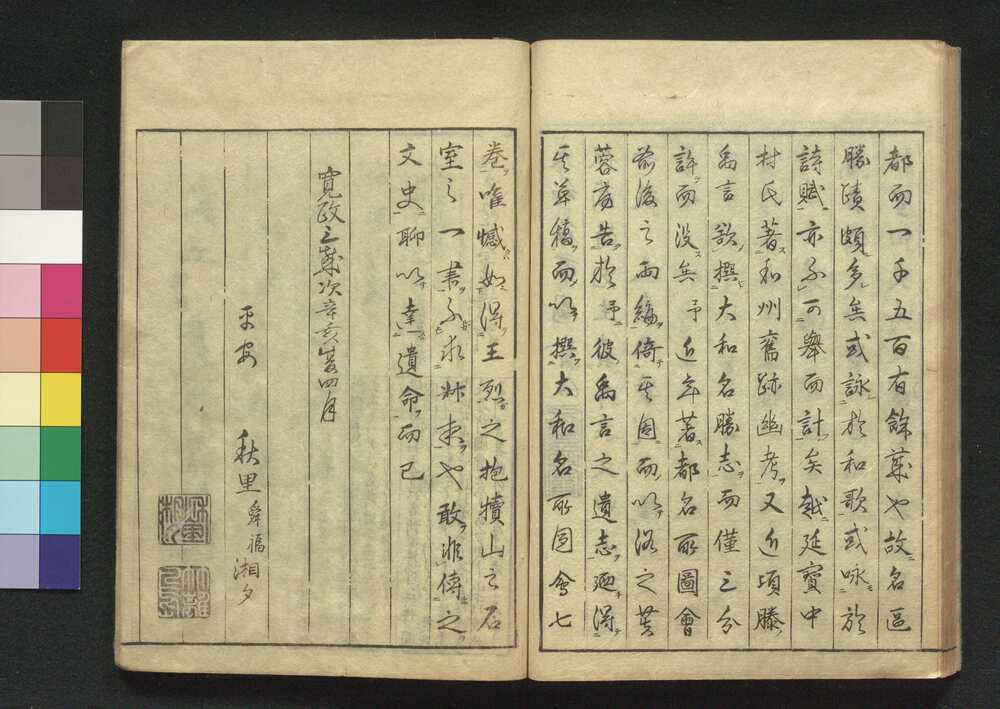 都而一千五百有餘歳也故名區
勝蹟頗多矣或詠於和歌或咏於
詩賦亦不可舉而計矣越延寶中
村氏著和州舊跡幽考又近頃藤
禹言欲撰大和名勝志而僅三分
許而没矣予近年著都名所圖會
前後之両編倚其図而以洛之
告於予彼禹言之遺志廼得
其草稿而以撰大和名所図會七
巻唯憾如得王烈之抱犢山之石
室之一素不求叔末也敢非傳之
文史聊以達遺命而已
寛政三歳次辛亥夏四月
平安
秋里舜福湘夕